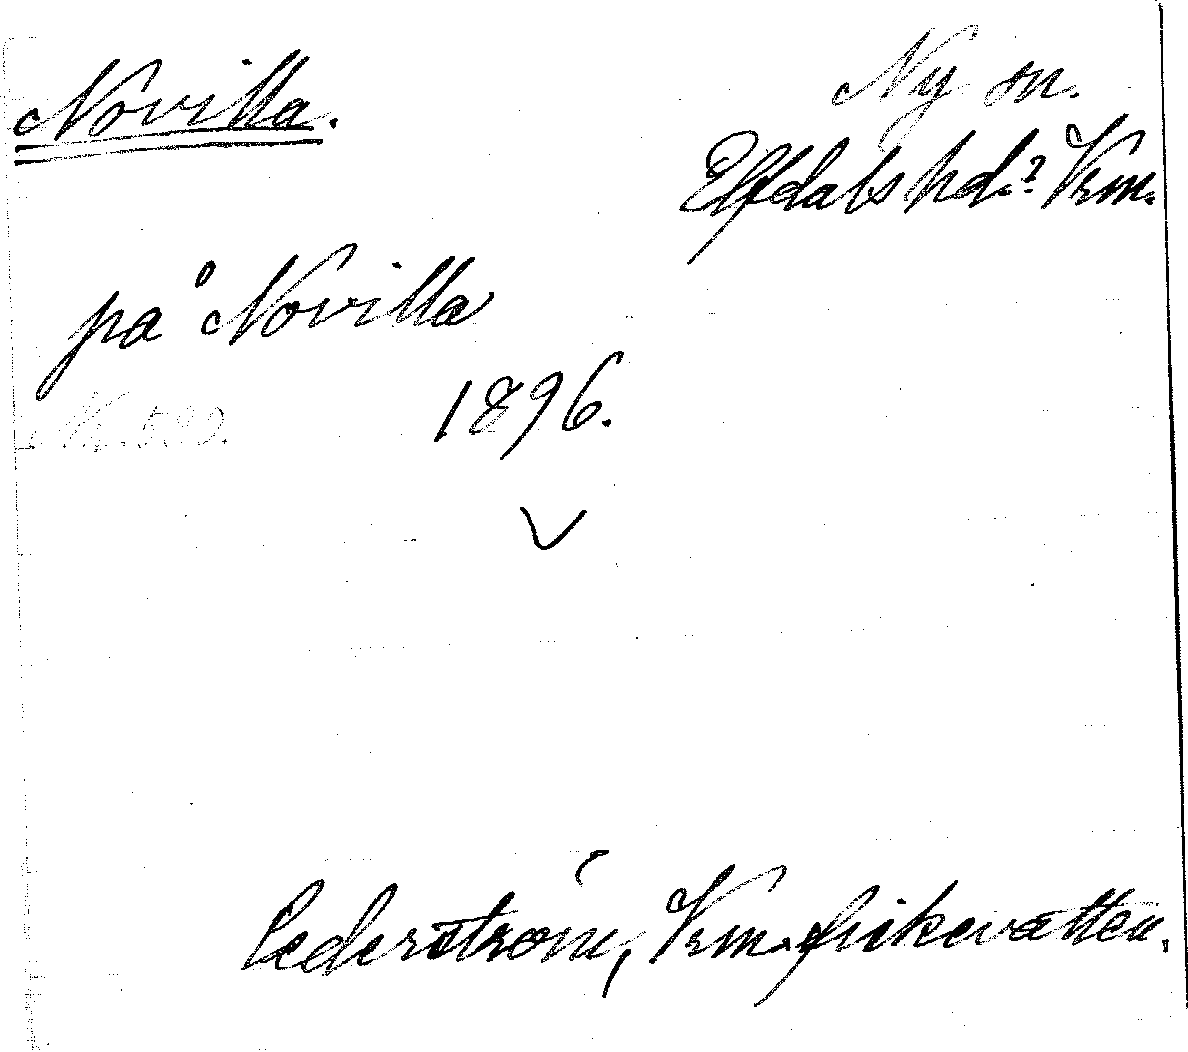 Novilla.
Ny sn.
Elfdals hd.? Vrm.
på Novilla
1896.
Nr. 590.
Cederström, Vrm. fiskevatten.